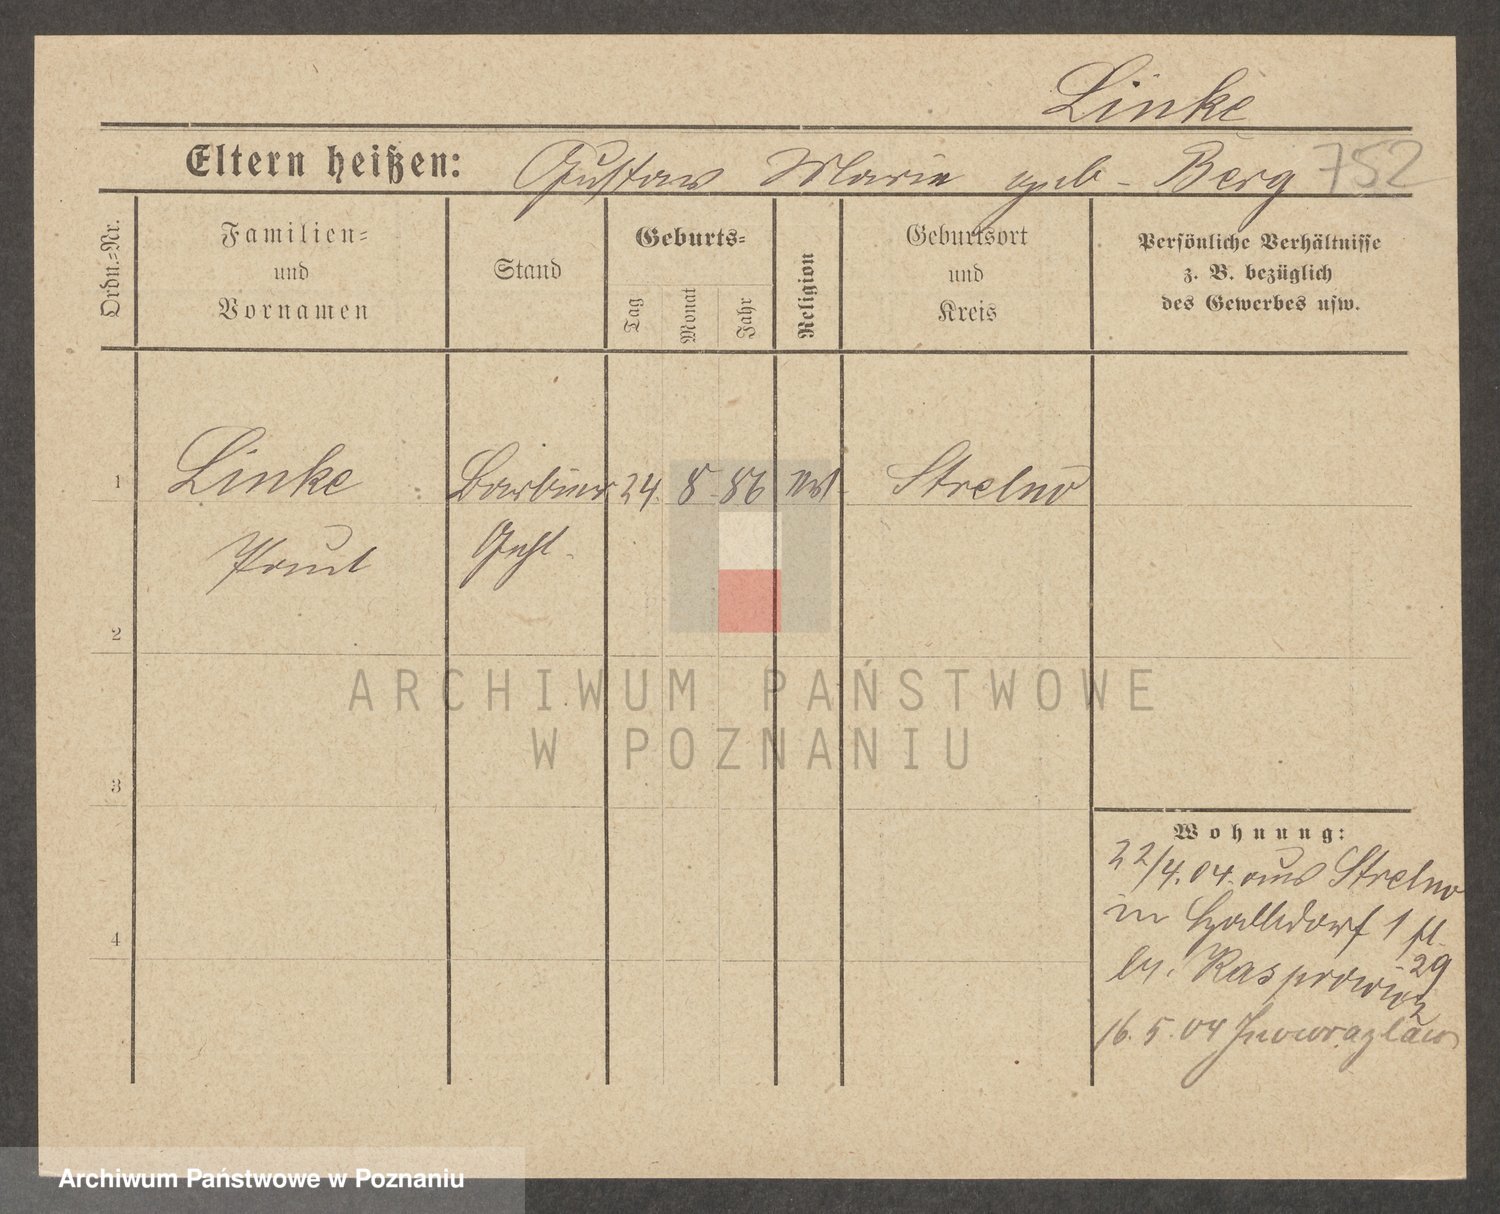 Linke
Eltern heißen: Gustav Marie geb. Berg 752
Ordn.=Nr.
Familien=
und
Vornamen
Stand
Geburts=
Tag
Monat
Jahr
Religion
Geburtsort
und
Kreis
Persönliche Verhältnisse
z. B. bezüglich
des Gewerbes usw.
1 Linke Barbier 24. 8. 86 Strelno
Paul Gehl.
2
3
4
Wohnung:
22/4. 04. aus Strelno
in Halldorf 1 fl.
29
by. Kasprowicz
16. 5. 04 Inowrazlaw
ARCHIWUM PAŃSTWOWE
W POZNANIU
Archiwum Państwowe w Poznaniu